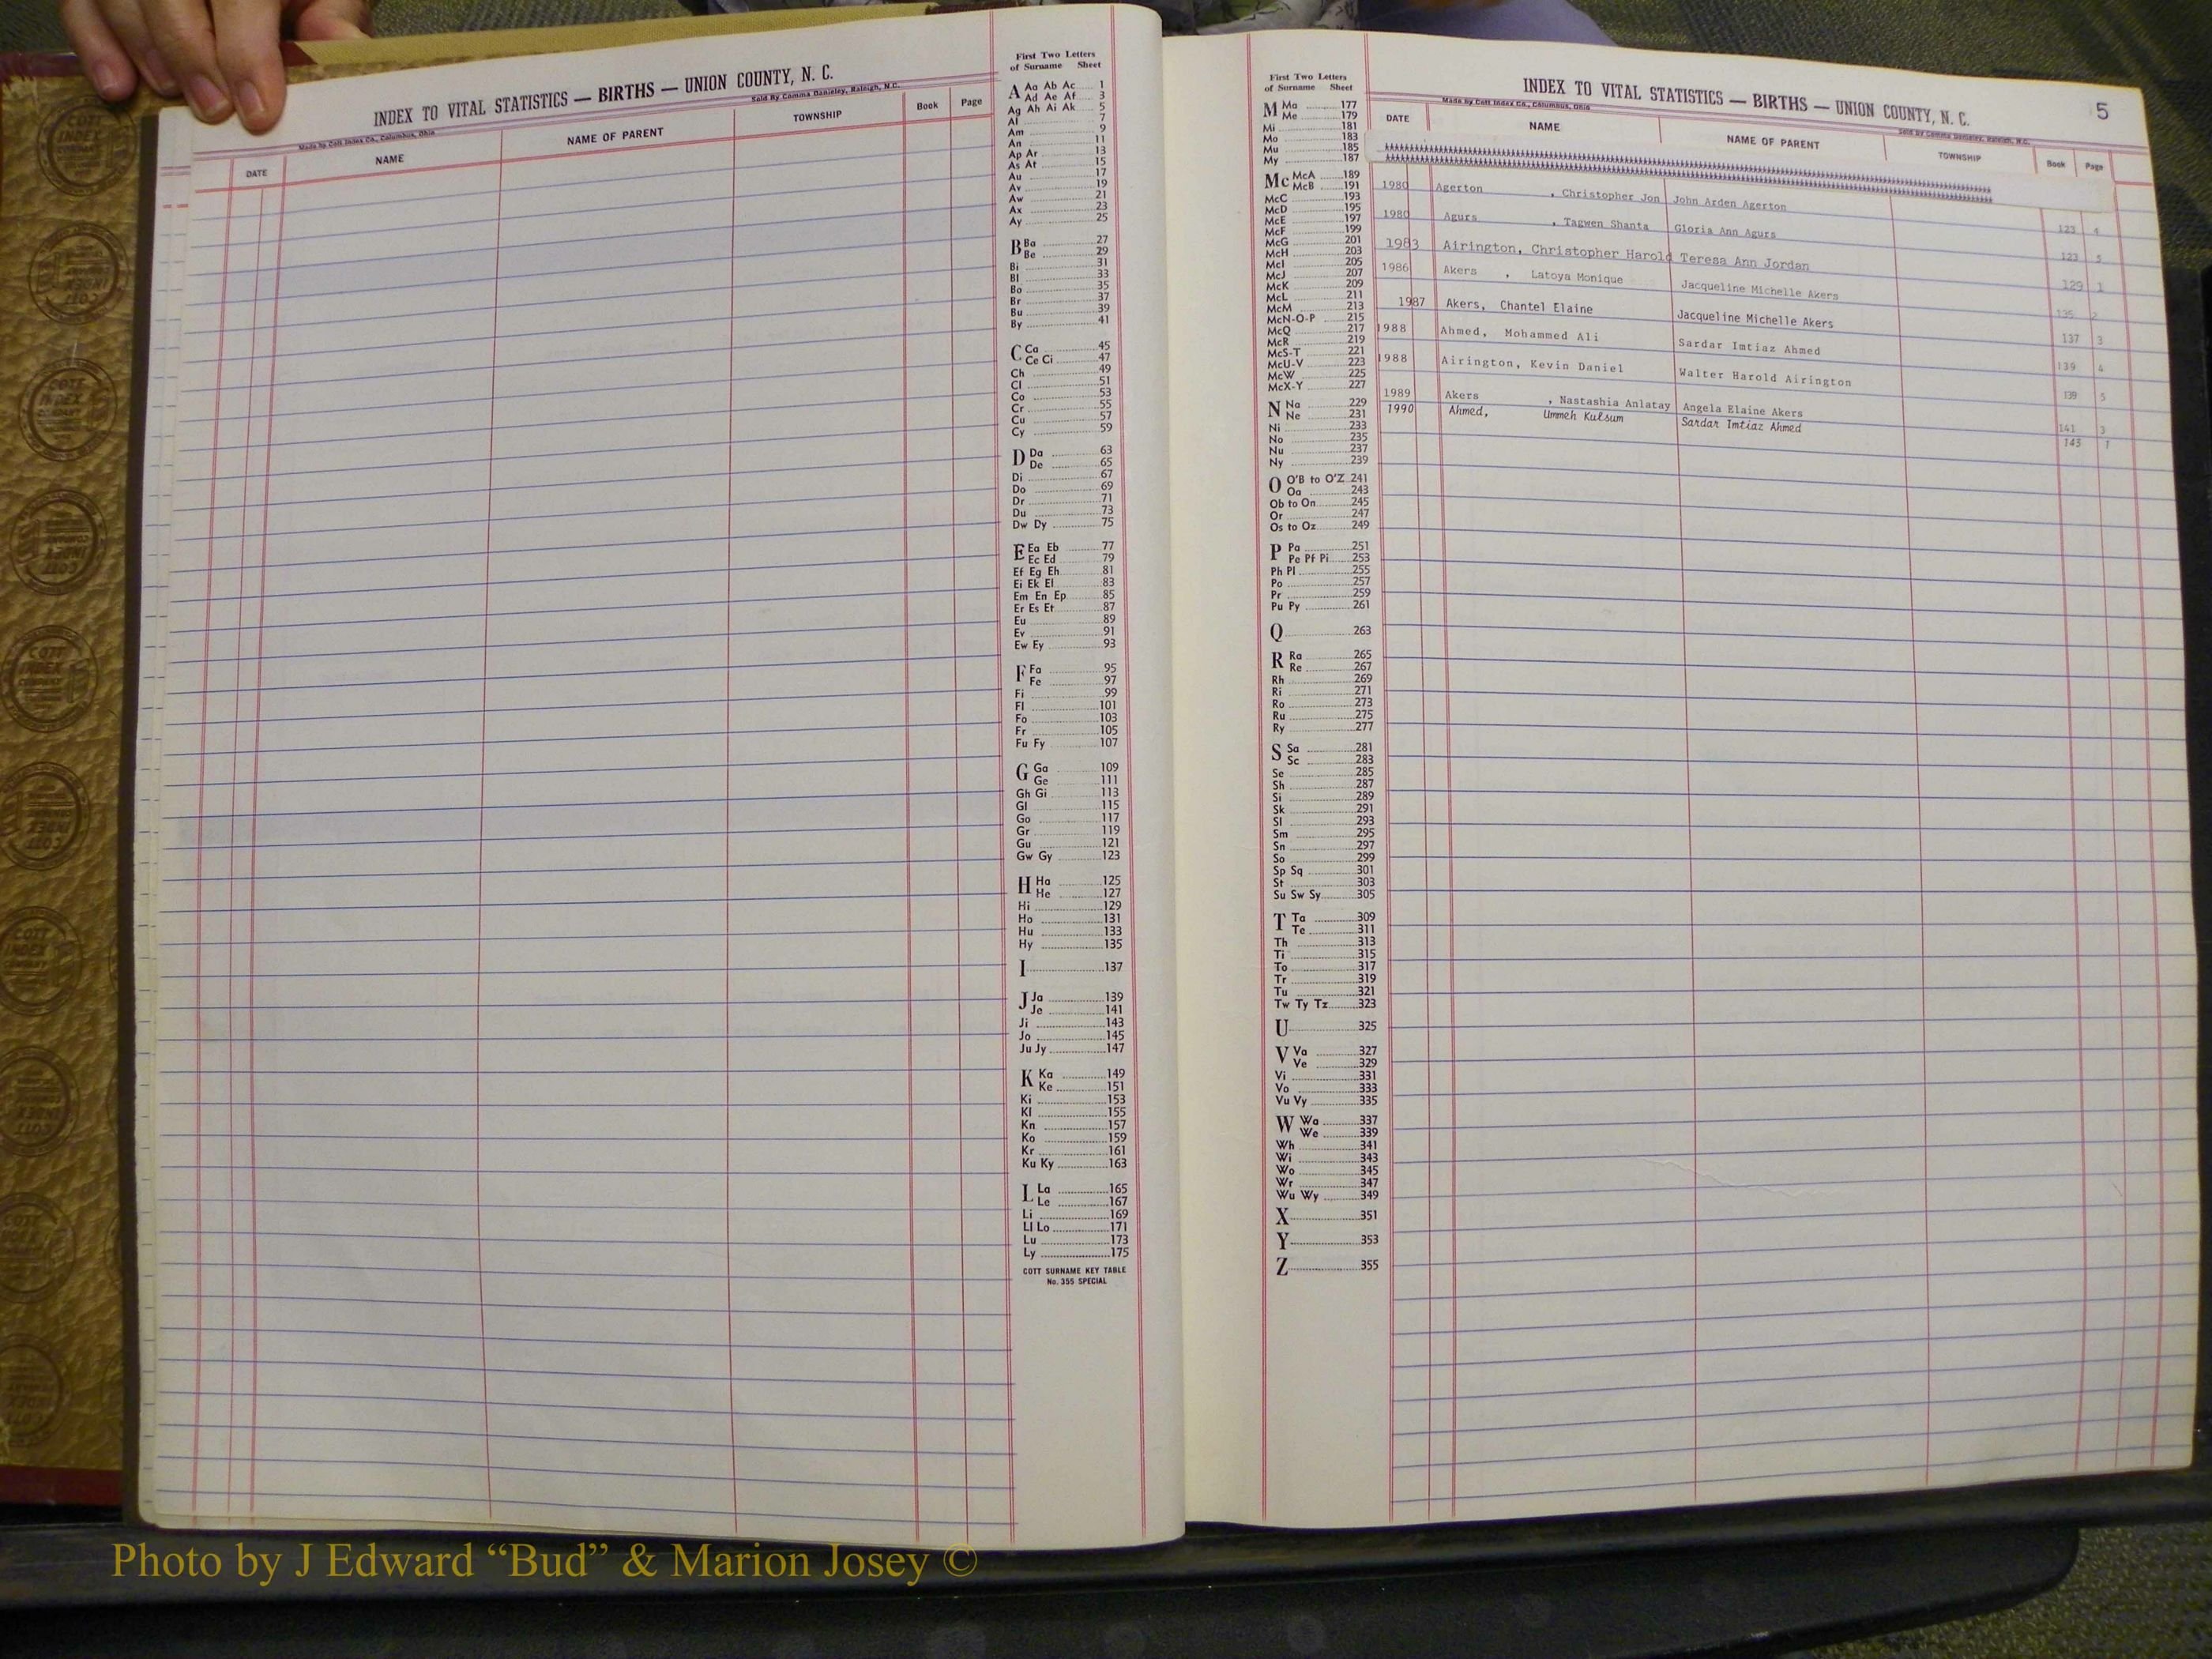 INDEX TO VITAL STATISTICS — BIRTHS — UNION COUNTY, N. C.
Made by Cott Index Co., Columbus, Ohio
Sold By Comma Danieley, Raleigh, N.C.
DATE NAME NAME OF PARENT TOWNSHIP Book Page
First Two Letters
of Surname Sheet
A Aa Ab Ac 1
Ad Ae Af 3
Ag Ah Ai Ak 5
Al 7
Am 9
An 11
Ap Ar 13
As At 15
Au 17
Av 19
Aw 21
Ax 23
Ay 25
B Ba 27
Be 29
Bi 31
Bl 33
Bo 35
Br 37
Bu 39
By 41
C Ca 45
Ce Ci 47
Ch 49
Cl 51
Co 53
Cr 55
Cu 57
Cy 59
D Da 63
De 65
Di 67
Do 69
Dr 71
Du 73
Dw Dy 75
E Ea Eb 77
Ec Ed 79
Ef Eg Eh 81
Ei Ek El 83
Em En Ep 85
Er Es Et 87
Eu 89
Ev 91
Ew Ey 93
F Fa 95
Fe 97
Fi 99
Fl 101
Fo 103
Fr 105
Fu Fy 107
G Ga 109
Ge 111
Gh Gi 113
Gl 115
Go 117
Gr 119
Gu 121
Gw Gy 123
H Ha 125
He 127
Hi 129
Ho 131
Hu 133
Hy 135
I 137
J Ja 139
Je 141
Ji 143
Jo 145
Ju Jy 147
K Ka 149
Ke 151
Ki 153
Kl 155
Kn 157
Ko 159
Kr 161
Ku Ky 163
L La 165
Le 167
Li 169
Ll Lo 171
Lu 173
Ly 175
COTT SURNAME KEY TABLE
No. 355 SPECIAL
First Two Letters
of Surname Sheet
M Ma 177
Me 179
Mi 181
Mo 183
Mu 185
My 187
Mc McA 189
McB 191
McC 193
McD 195
McE 197
McF 199
McG 201
McH 203
McI 205
McJ 207
McK 209
McL 211
McM 213
McN-O-P 215
McQ 217
McR 219
McS-T 221
McU-V 223
McW 225
McX-Y 227
N Na 229
Ne 231
Ni 233
No 235
Nu 237
Ny 239
O O'B to O'Z 241
Oa 243
Ob to On 245
Or 247
Os to Oz 249
P Pa 251
Pe Pf Pi 253
Ph Pl 255
Po 257
Pr 259
Pu Py 261
Q 263
R Ra 265
Re 267
Rh 269
Ri 271
Ro 273
Ru 275
Ry 277
S Sa 281
Sc 283
Se 285
Sh 287
Si 289
Sk 291
Sl 293
Sm 295
Sn 297
So 299
Sp Sq 301
St 303
Su Sw Sy 305
T Ta 309
Te 311
Th 313
Ti 315
To 317
Tr 319
Tu 321
Tw Ty Tz 323
U 325
V Va 327
Ve 329
Vi 331
Vo 333
Vu Vy 335
W Wa 337
We 339
Wh 341
Wi 343
Wo 345
Wr 347
Wu Wy 349
X 351
Y 353
Z 355
INDEX TO VITAL STATISTICS — BIRTHS — UNION COUNTY, N. C. 5
Made by Cott Index Co., Columbus, Ohio
Sold By Comma Danieley, Raleigh, N.C.
DATE NAME NAME OF PARENT TOWNSHIP Book Page
1980 Agerton , Christopher Jon John Arden Agerton 123 4
1980 Agurs , Tagwen Shanta Gloria Ann Agurs 123 5
1983 Airington, Christopher Harold Teresa Ann Jordan 129 1
1986 Akers , Latoya Monique Jacqueline Michelle Akers 135 2
1987 Akers, Chantel Elaine Jacqueline Michelle Akers 137 3
1988 Ahmed, Mohammed Ali Sardar Imtiaz Ahmed 139 4
1988 Airington, Kevin Daniel Walter Harold Airington 139 5
1989 Akers , Nastashia Anlatay Angela Elaine Akers 141 3
1990 Ahmed, Ummeh Kulsum Sardar Imtiaz Ahmed 143 1
Photo by J Edward “Bud” & Marion Josey ©